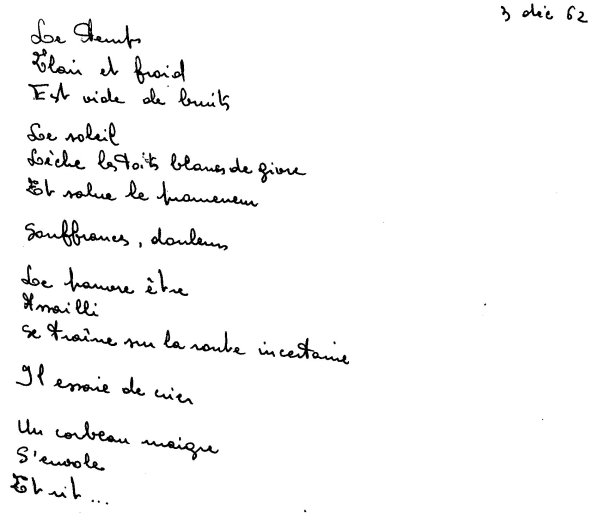 3 déc 62
Le temps
Clair et froid
Est vide de bruits
Le soleil
Lèche les toits blancs de givre
Et salue le promeneur
Souffrances, douleurs
Le pauvre être
Assailli
Se traîne sur la route incertaine
Il essaie de crier
Un corbeau maigre
S'envole
Et rit ...